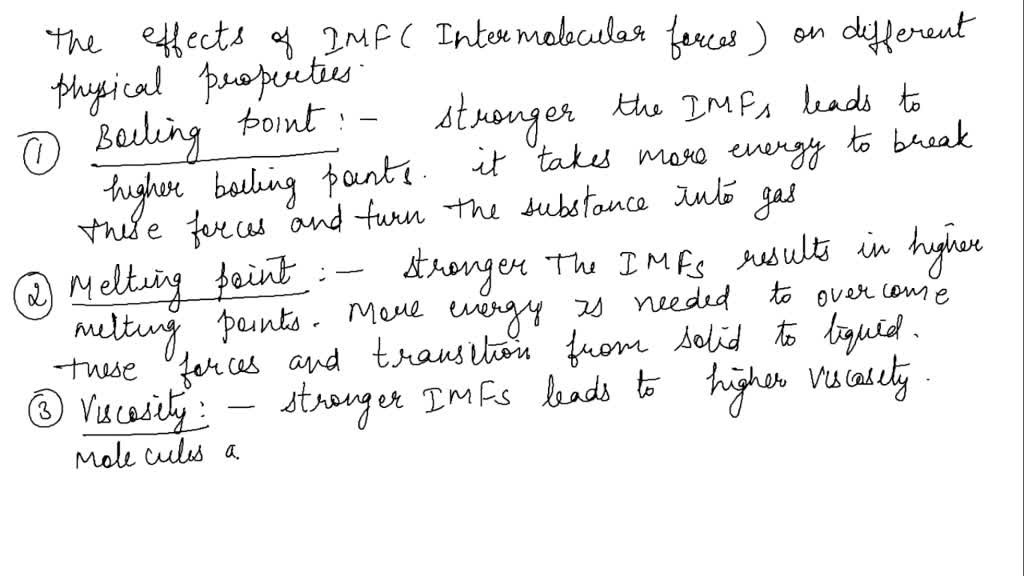 The effects of IMF ( Intermolecular forces ) on different
physical properties.
① Boiling point : – stronger the IMFs leads to
higher boiling points. it takes more energy to break
these forces and turn the substance into gas
② Melting point : – stronger The IMFs results in higher
melting points. More energy is needed to overcome
these forces and transition from solid to liquid.
③ Viscosity : – stronger IMFs leads to higher viscosity.
Molecules a